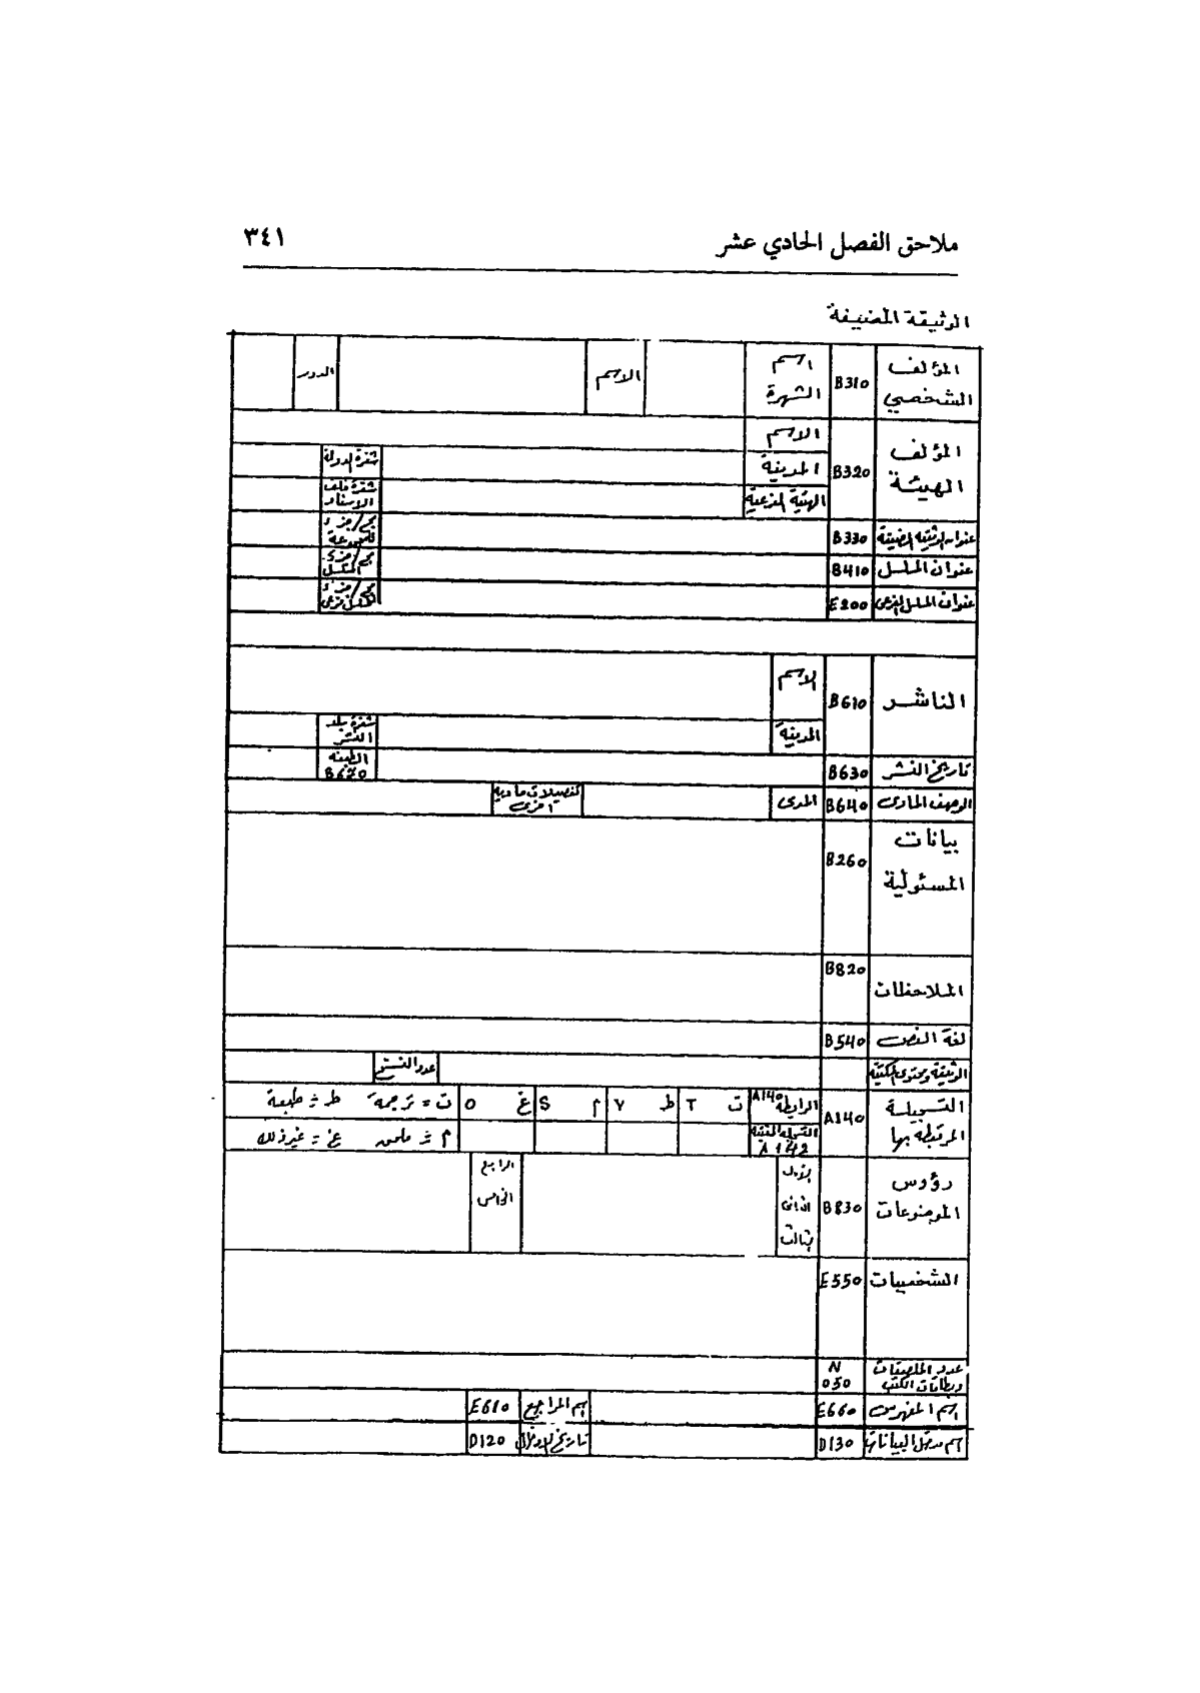 ملاحق الفصل الحادي عشر ٣٤١
الوثيقة المضيفة
المؤلف الشخصي B310 اسم الشهرة الاسم الدور
المؤلف الهيئة B320 الاسم
المدينة شفرة الدولة
الهيئة الفرعية شفرة ملف الإسناد
عنوان الوثيقة المضيفة B330 مج/جزء المجموعة
عنوان المسلسل B410 مج/جزء المسلسل
عنوان المسلسل الفرعي E200 مج/جزء
الناشر B610 الاسم
المدينة شفرة بلد النشر
تاريخ النشر B630 الطبعة B620
الوصف المادي B640 المدى تفصيلات مادية أخرى
بيانات المسئولية B260
الملاحظات B820
لغة النص B540
عدد النسخ
التسجيلة المرتبطة بها A140 الرابطة A140 ت T ط V م S غ O ت = ترجمة ط = طبعة
A142 م = ملحق غ = غير ذلك
رؤوس الموضوعات B830 الأول الثاني الثالث الرابع الخامس
الشخصيات E550
عدد الملصقات وبطاقات الكتب N 050
اسم المفهرس E660 اسم المراجع E610
اسم مدخل البيانات D130 تاريخ الإدخال D120